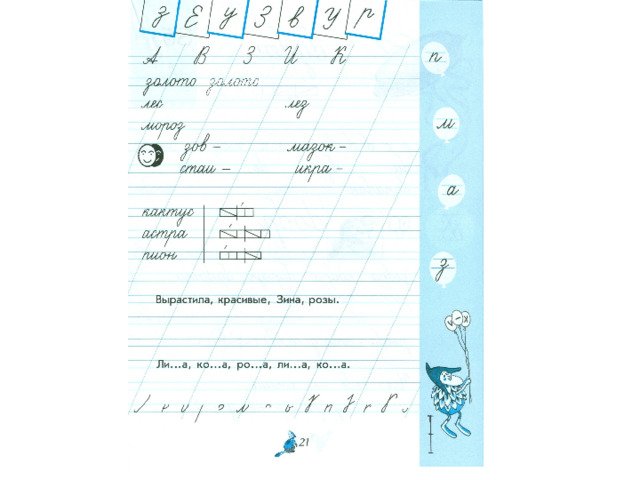 З Е У З в У р
А В З И К
золото золото
лес лез
мороз
зов – мазок –
стаи – икра –
кактус
астра
пион
Вырастила, красивые, Зина, розы.
Ли...а, ко...а, ро...а, ли...а, ко...а.
21
п
м
а
з